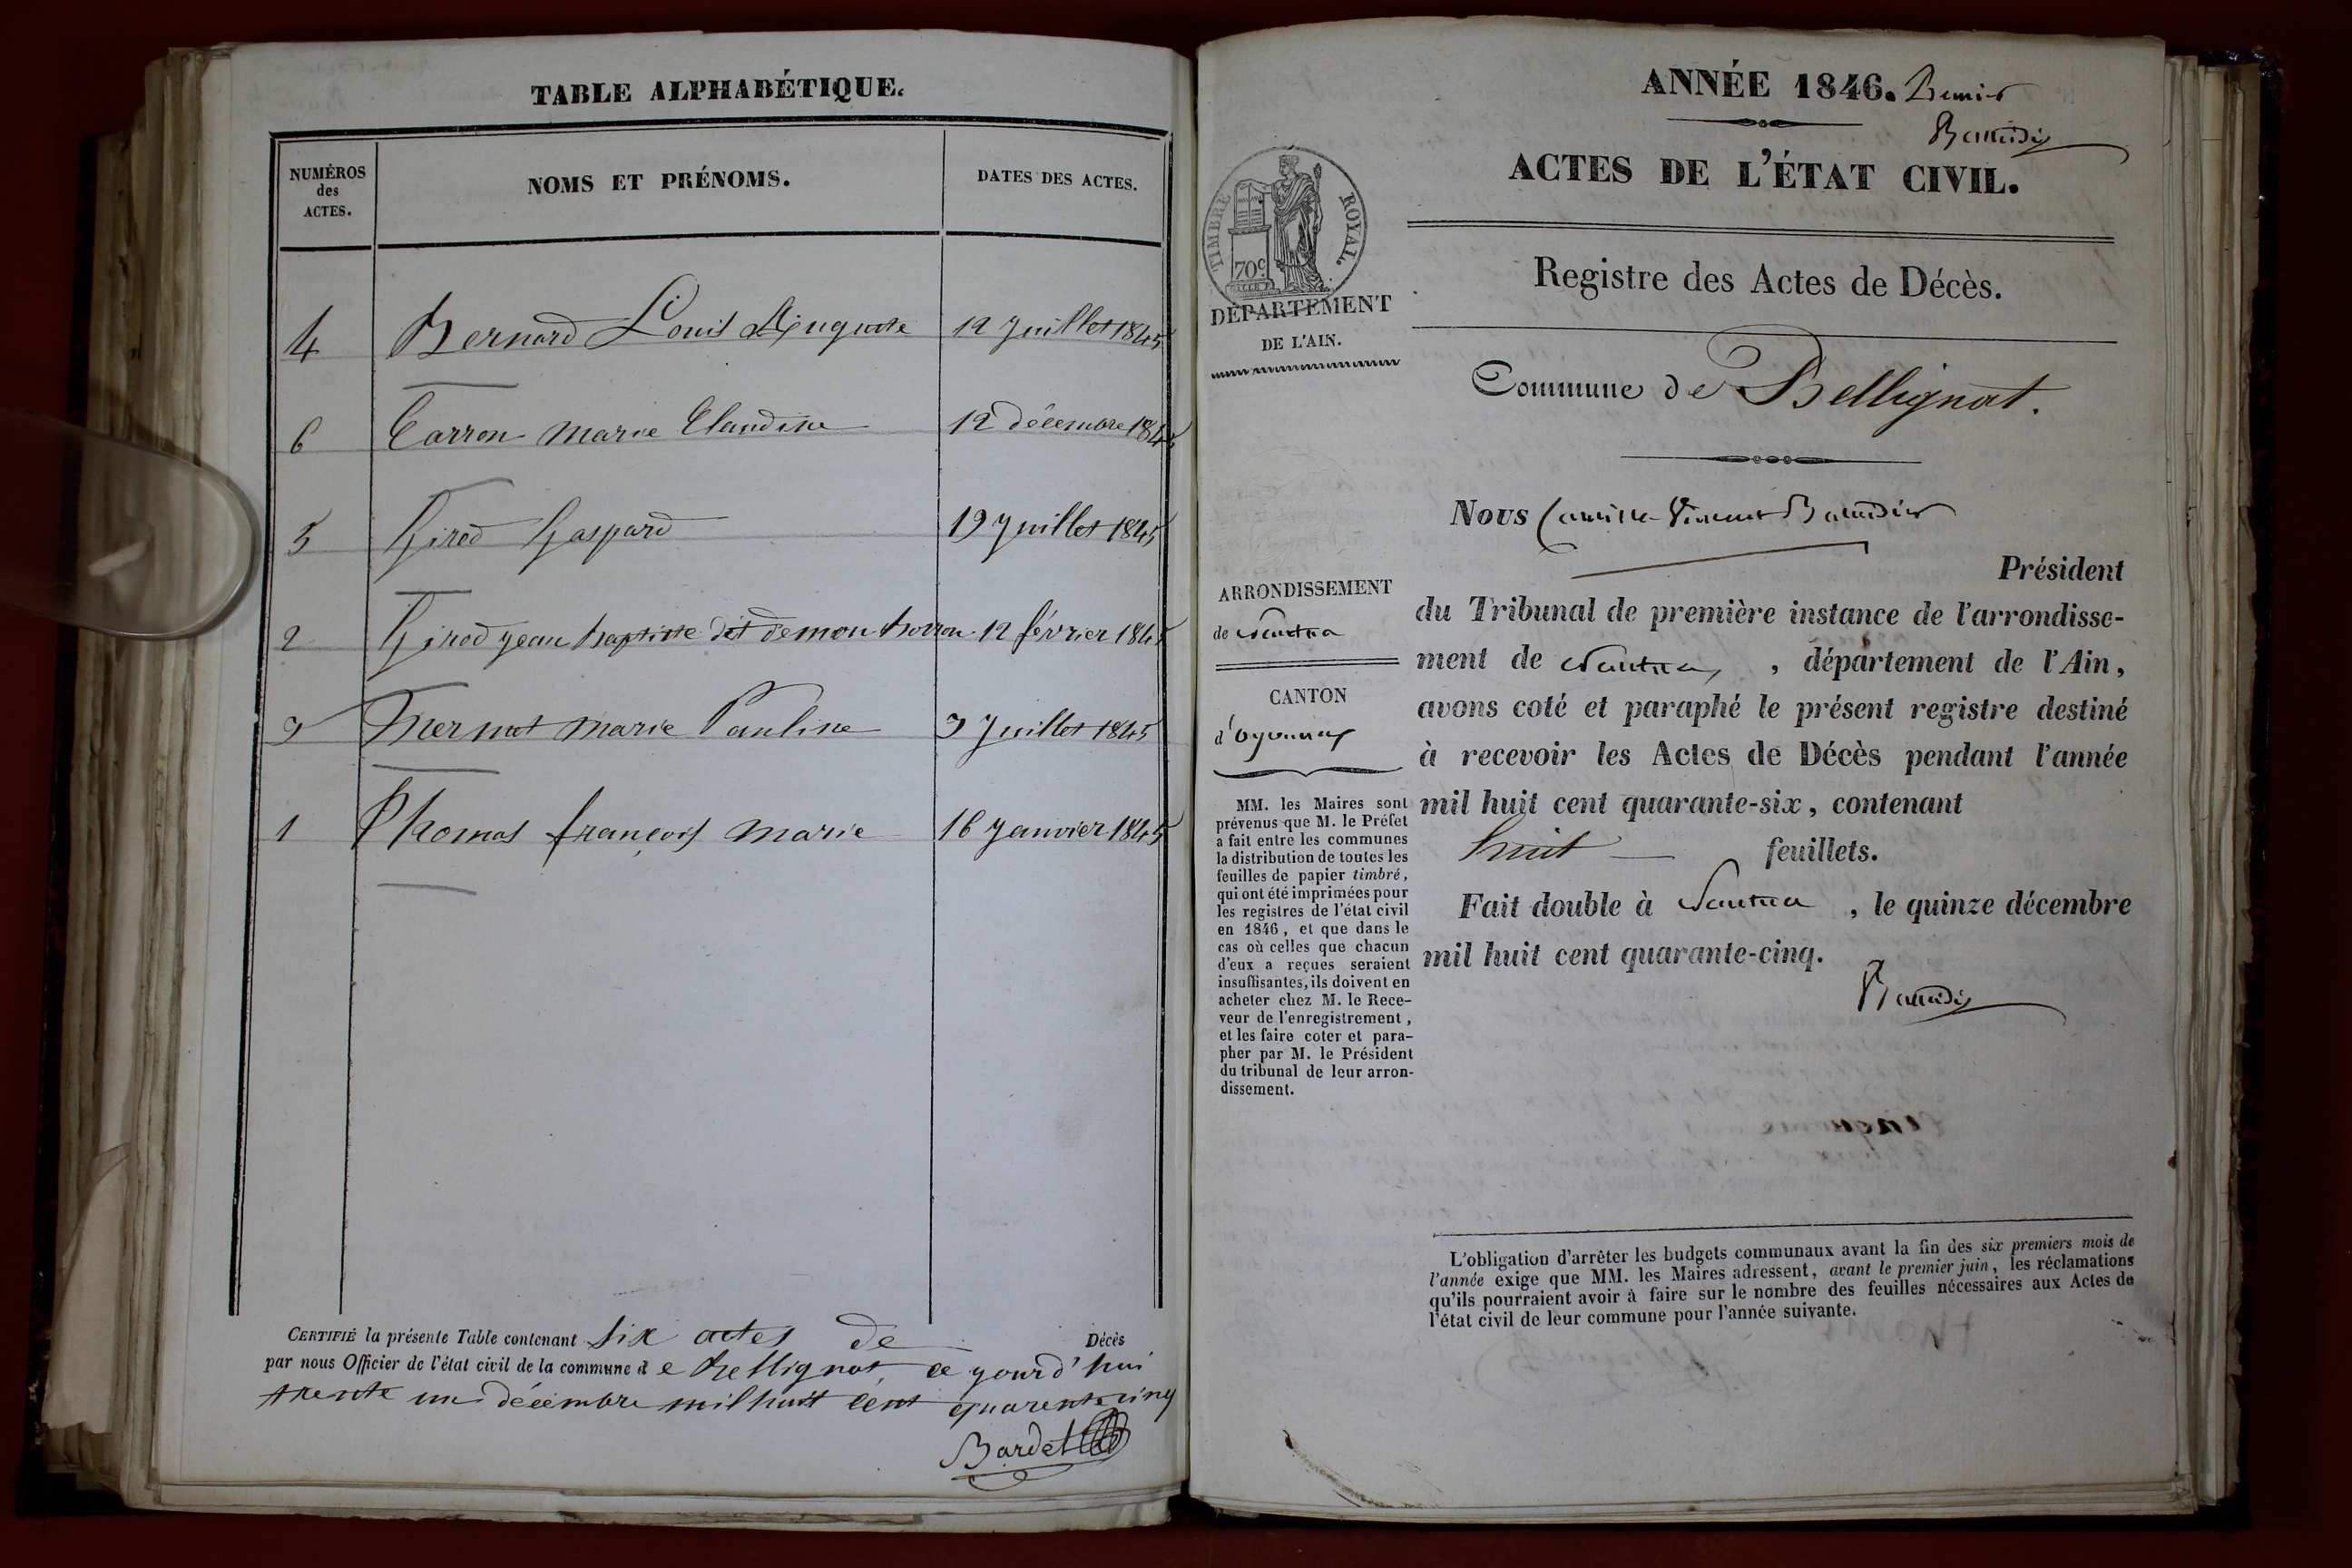 TABLE ALPHABÉTIQUE.
NUMÉROS des ACTES.
NOMS ET PRÉNOMS.
DATES DES ACTES.
4 Bernard Louis Auguste 12 Juillet 1845
6 Carron marie Claudine 12 décembre 1845
5 Girod Gaspard 19 Juillet 1845
2 Girod jean baptiste dit 12 février 1845
3 marie Pauline 3 Juillet 1845
1 Thomas françois marie 16 Janvier 1845
CERTIFIÉ la présente Table contenant six actes de Décès
par nous Officier de l'état civil de la commune de bellignat, ce jourd'hui
trente un décembre mil huit cent quarente cinq
Bardet
ANNÉE 1846. Premier
ACTES DE L'ÉTAT CIVIL.
TIMBRE ROYAL.
70c
DÉPARTEMENT
DE L'AIN.
Registre des Actes de Décès.
Commune de Bellignat.
ARRONDISSEMENT
de Nantua
CANTON
d'oyonnax
MM. les Maires sont
prévenus que M. le Préfet
a fait entre les communes
la distribution de toutes les
feuilles de papier timbré,
qui ont été imprimées pour
les registres de l'état civil
en 1846, et que dans le
cas où celles que chacun
d'eux a reçues seraient
insuffisantes, ils doivent en
acheter chez M. le Rece-
veur de l'enregistrement,
et les faire coter et para-
pher par M. le Président
du tribunal de leur arron-
dissement.
Nous Camille Vincent
Président
du Tribunal de première instance de l'arrondisse-
ment de Nantua, département de l'Ain,
avons coté et paraphé le présent registre destiné
à recevoir les Actes de Décès pendant l'année
mil huit cent quarante-six, contenant
huit feuillets.
Fait double à Nantua, le quinze décembre
mil huit cent quarante-cinq.
L'obligation d'arrêter les budgets communaux avant la fin des six premiers mois de
l'année exige que MM. les Maires adressent, avant le premier juin, les réclamations
qu'ils pourraient avoir à faire sur le nombre des feuilles nécessaires aux Actes de
l'état civil de leur commune pour l'année suivante.